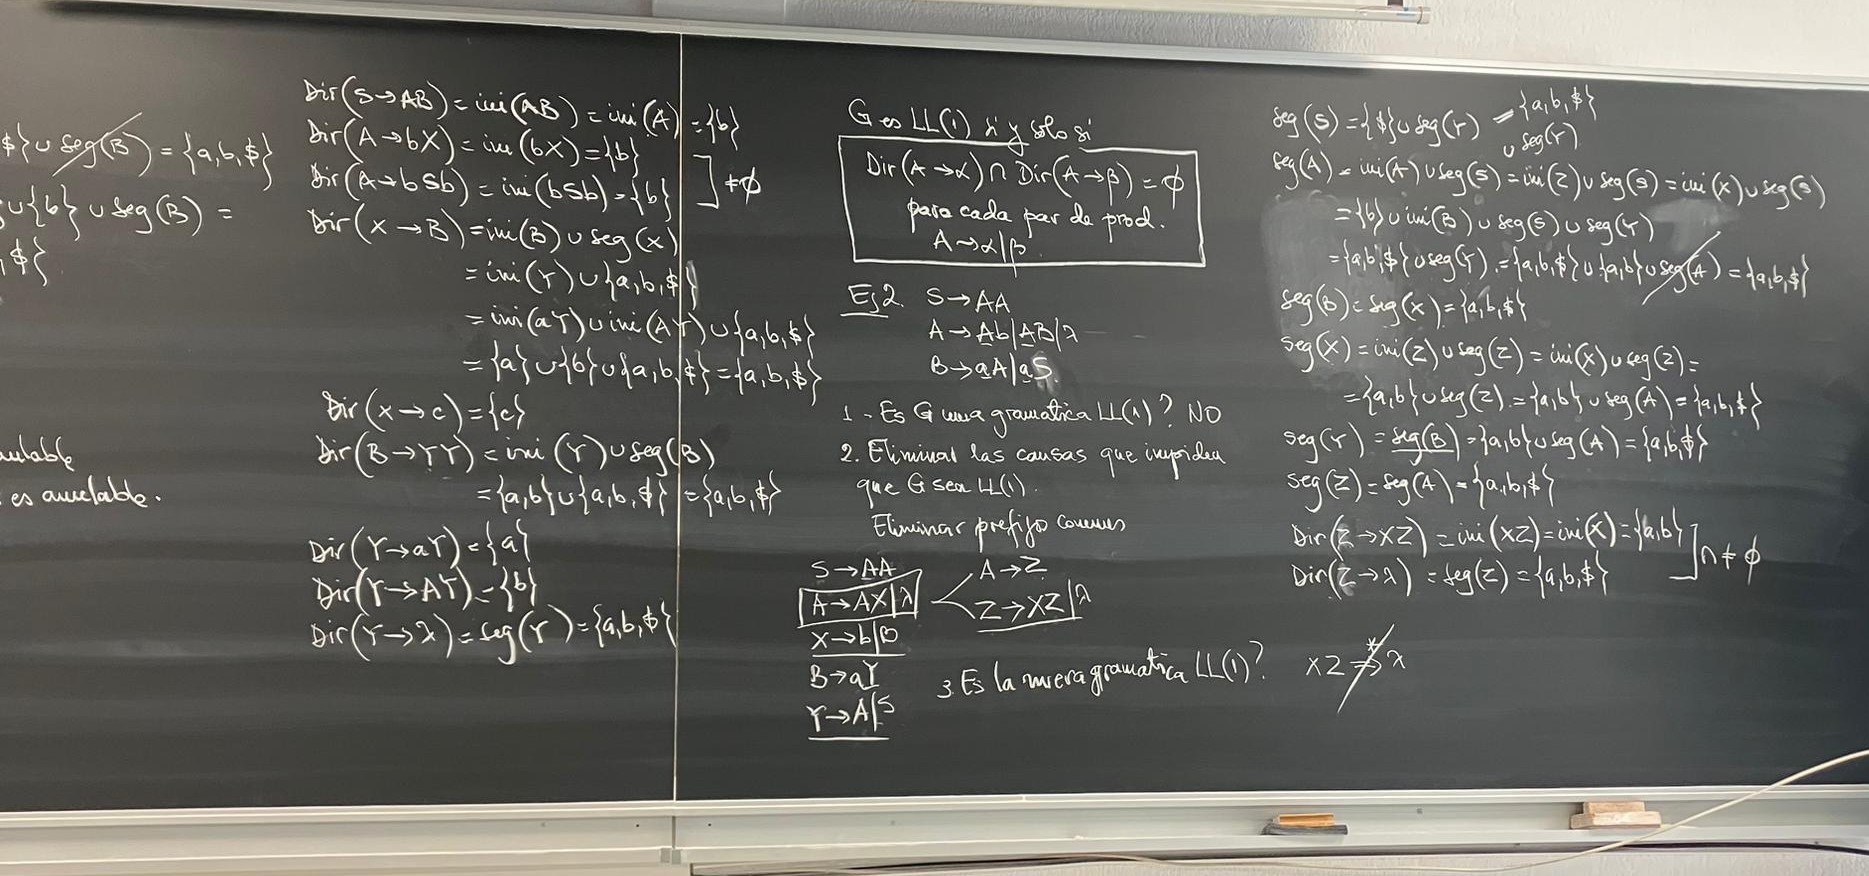 $} ∪ seg(B) = {a,b,$}
∪{b} ∪ seg(B) =
,$}.
es anulable.
Dir(S→AB) = ini(AB) = ini(A) = {b}
Dir(A→bX) = ini(bX) = {b}
Dir(A→bSb) = ini(bSb) = {b} ] ≠ ϕ
Dir(X→B) = ini(B) ∪ seg(X)
= ini(Y) ∪ {a,b,$}
= ini(aY) ∪ ini(AY) ∪ {a,b,$}
= {a} ∪ {b} ∪ {a,b,$} = {a,b,$}
Dir(X→c) = {c}
Dir(B→YY) = ini(Y) ∪ seg(B)
= {a,b} ∪ {a,b,$} = {a,b,$}
Dir(Y→aY) = {a}
Dir(Y→AY) = {b}
Dir(Y→λ) = seg(Y) = {a,b,$}
G es LL(1) si y solo si
Dir(A→α) ∩ Dir(A→β) = ϕ
para cada par de prod.
A→α|β
Ej 2. S→AA
A→Ab|AB|λ
B→aA|aS
1 - Es G una gramatica LL(1)? NO
2. Eliminar las causas que impiden
que G sea LL(1).
Eliminar prefijo comunes
S→AA
A→AX|λ
X→b|B
B→aY
Y→A|S
A→Z
Z→XZ|λ
3. Es la nueva gramatica LL(1)?
seg(S) = {$} ∪ seg(Y) = {a,b,$}
∪ seg(Y)
seg(A) = ini(A) ∪ seg(S) = ini(Z) ∪ seg(S) = ini(X) ∪ seg(S)
= {b} ∪ ini(B) ∪ seg(S) ∪ seg(Y)
= {a,b,$} ∪ seg(Y) = {a,b,$} ∪ {a,b} ∪ seg(A) = {a,b,$}
seg(B) = seg(X) = {a,b,$}
seg(X) = ini(Z) ∪ seg(Z) = ini(X) ∪ seg(Z) =
= {a,b} ∪ seg(Z) = {a,b} ∪ seg(A) = {a,b,$}
seg(Y) = seg(B) = {a,b} ∪ seg(A) = {a,b,$}
seg(Z) = seg(A) = {a,b,$}
Dir(Z→XZ) = ini(XZ) = ini(X) = {a,b}
Dir(Z→λ) = seg(Z) = {a,b,$} ] ∩ ≠ ϕ
XZ ⇏* λ